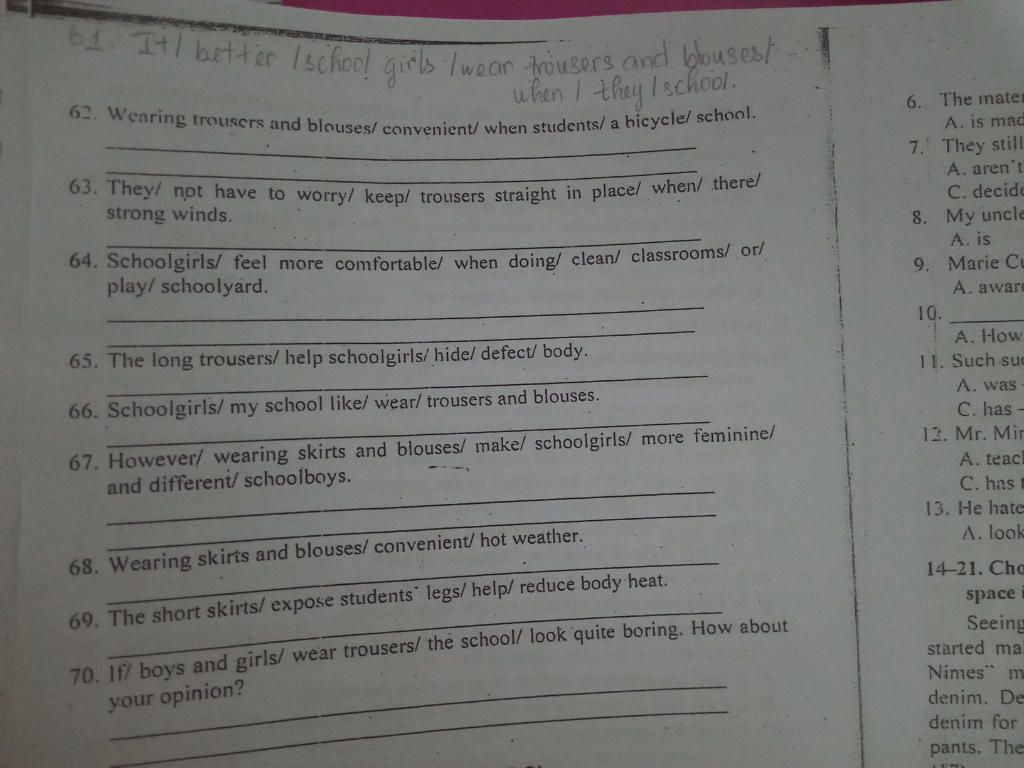 61. It / better / school girls / wear trousers and blouses/
when / they / school.
62. Wearing trousers and blouses/ convenient/ when students/ a bicycle/ school.
63. They/ not have to worry/ keep/ trousers straight in place/ when/ there/
strong winds.
64. Schoolgirls/ feel more comfortable/ when doing/ clean/ classrooms/ or/
play/ schoolyard.
65. The long trousers/ help schoolgirls/ hide/ defect/ body.
66. Schoolgirls/ my school like/ wear/ trousers and blouses.
67. However/ wearing skirts and blouses/ make/ schoolgirls/ more feminine/
and different/ schoolboys.
68. Wearing skirts and blouses/ convenient/ hot weather.
69. The short skirts/ expose students' legs/ help/ reduce body heat.
70. If/ boys and girls/ wear trousers/ the school/ look quite boring. How about
your opinion?
6. The
A. is
7. They still
A. aren't
C.
8. My uncle
A. is
9. Marie
A.
10.
A. How
11. Such
A. was
C. has -
12. Mr.
A.
C. has
13. He
A. look
14–21.
space
Seeing
started
Nimes"
denim. De
denim for
pants. The